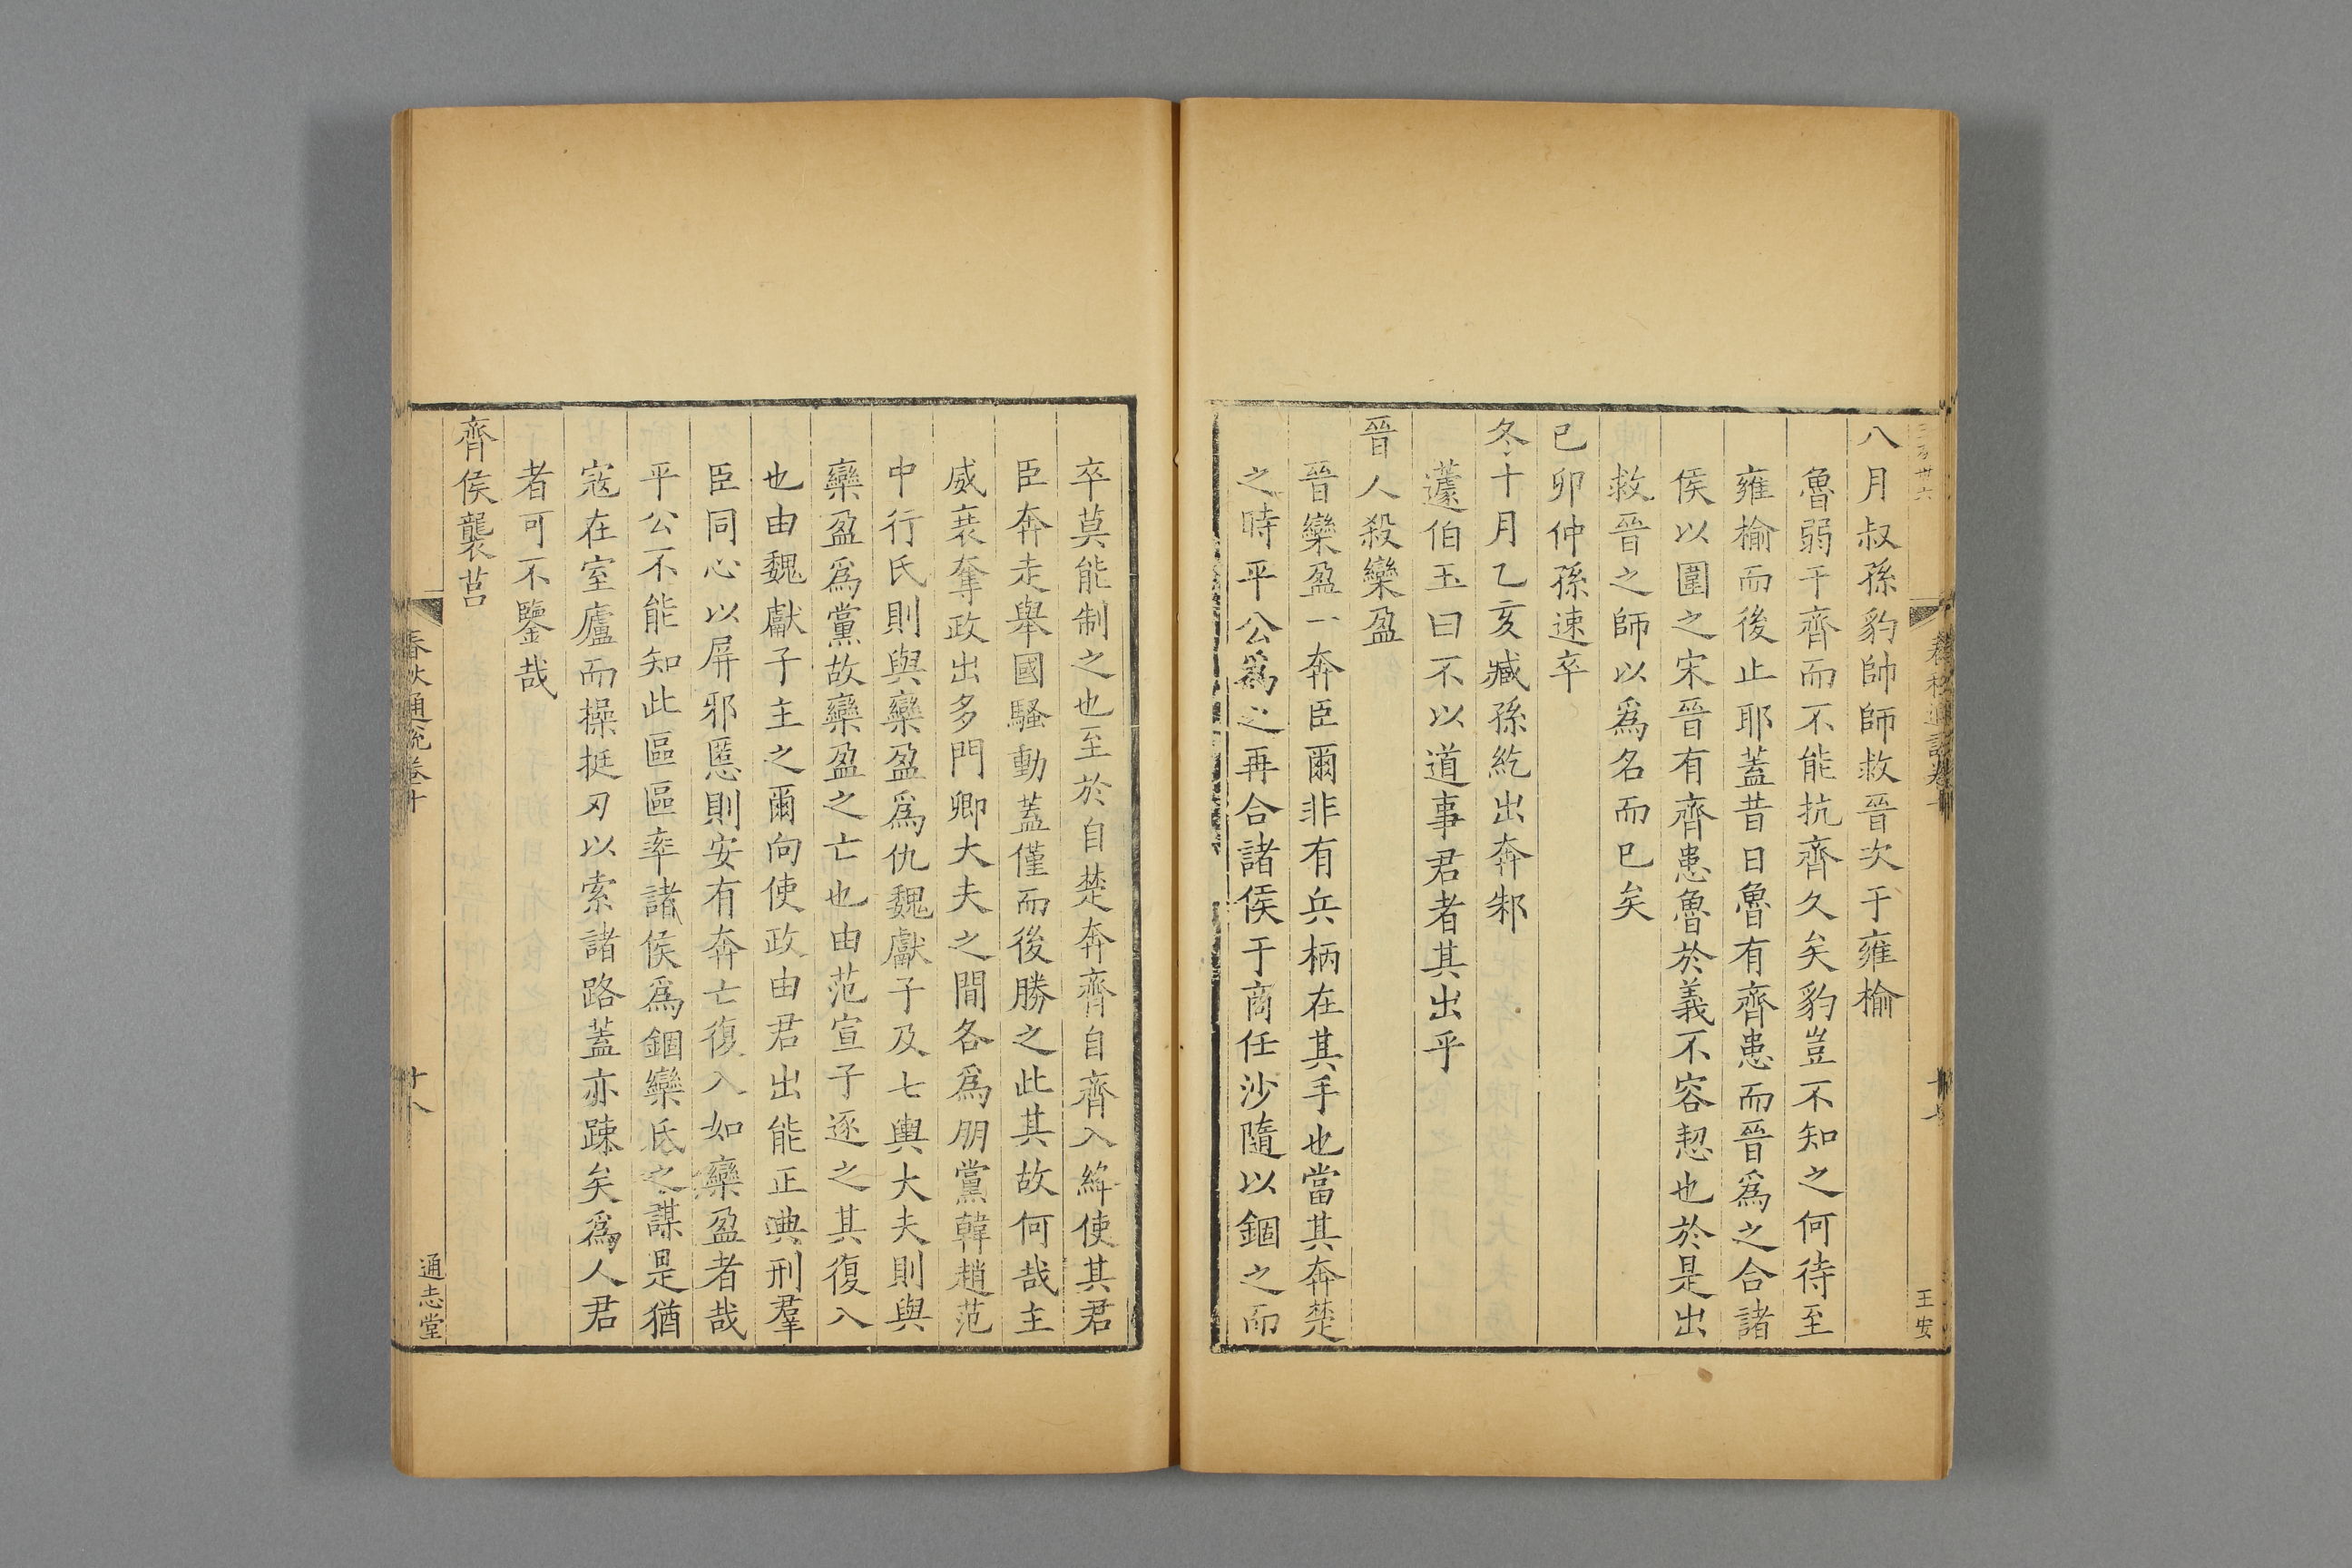 八月叔孫豹帥師救晉次于雍榆
魯弱于齊而不能抗齊久矣豹豈不知之何待至
雍榆而後止耶蓋昔日魯有齊患而晉爲之合諸
侯以圍之宋晉有齊患魯於義不容恝也於是出
救晉之師以爲名而已矣
已卯仲孫速卒
冬十月乙亥臧孫紇出奔邾
蘧伯玉曰不以道事君者其出乎
晉人殺欒盈
晉欒盈一奔臣爾非有兵柄在其手也當其奔楚
之時平公爲之再合諸侯于商任沙隨以錮之而
王安
卒莫能制之也至於自楚奔齊自齊入絳使其君
臣奔走舉國騷動蓋僅而後勝之此其故何哉主
威衰奪政出多門卿大夫之間各爲朋黨韓趙范
中行氏則與欒盈爲仇魏獻子及七輿大夫則與
欒盈爲黨故欒盈之亡也由范宣子逐之其復入
也由魏獻子主之爾向使政由君出能正典刑羣
臣同心以屏邪慝則安有奔亡復入如欒盈者哉
平公不能知此區區率諸侯爲錮欒氏之謀是猶
寇在室廬而操挺刃以索諸路蓋亦踈矣爲人君
者可不鑒哉
齊侯襲莒
春秋通說卷十
十八
通志堂